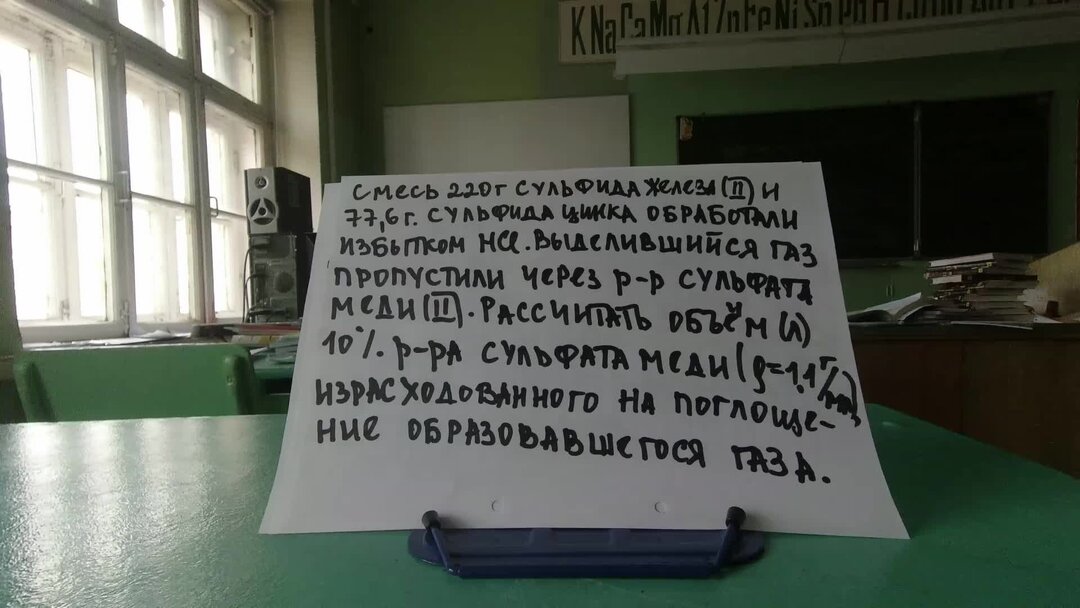 K Na Ca Mg Al Zn Fe Ni Sn Pb H
Смесь 220г сульфида железа (II) и
77,6г. сульфида цинка обработали
избытком HCl. Выделившийся газ
пропустили через р-р сульфата
меди (II). Рассчитать объём (л)
10%. р-ра сульфата меди (ρ=1,1 г/мл)
израсходованного на поглоще-
ние образовавшегося газа.